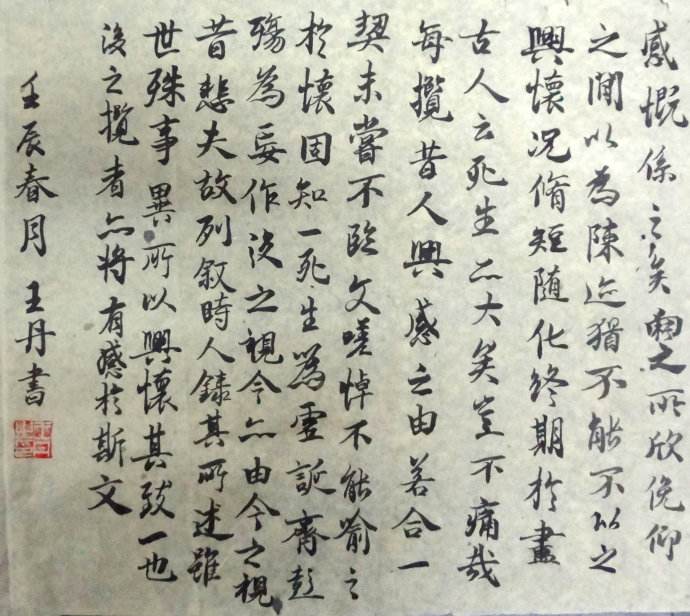 感慨係之矣向之所欣俛仰
之間以為陳迹猶不能不以之
興懷況脩短隨化終期於盡
古人云死生亦大矣豈不痛哉
每攬昔人興感之由若合一
契未嘗不臨文嗟悼不能喻之
於懷固知一死生為虛誕齊彭
殤為妄作後之視今亦由今之視
昔悲夫故列敘時人錄其所述雖
世殊事異所以興懷其致一也
後之攬者亦將有感於斯文
壬辰春月 王丹書